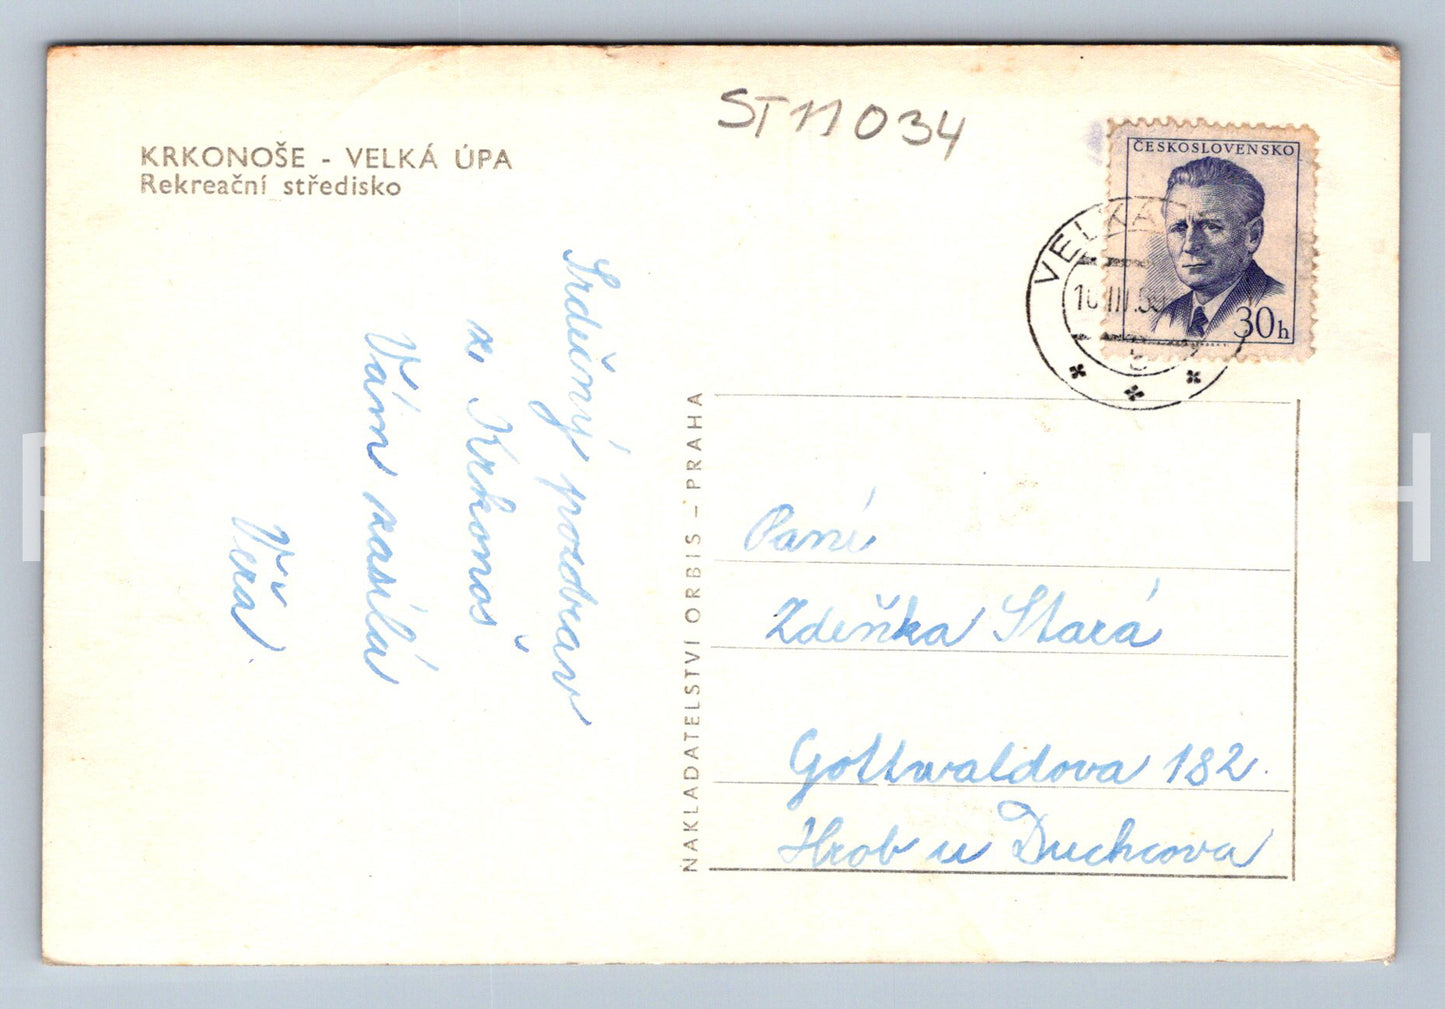 KRKONOŠE - VELKÁ ÚPA
Rekreační středisko
ST 11 034
ČESKOSLOVENSKO
30h
VELKÁ
Srdečný pozdrav
z Krkonoš
Vám zasílá
Věra
NAKLADATELSTVÍ ORBIS – PRAHA
Paní
Zdeňka Stará
Gottwaldova 182.
Hrob u Duchcova